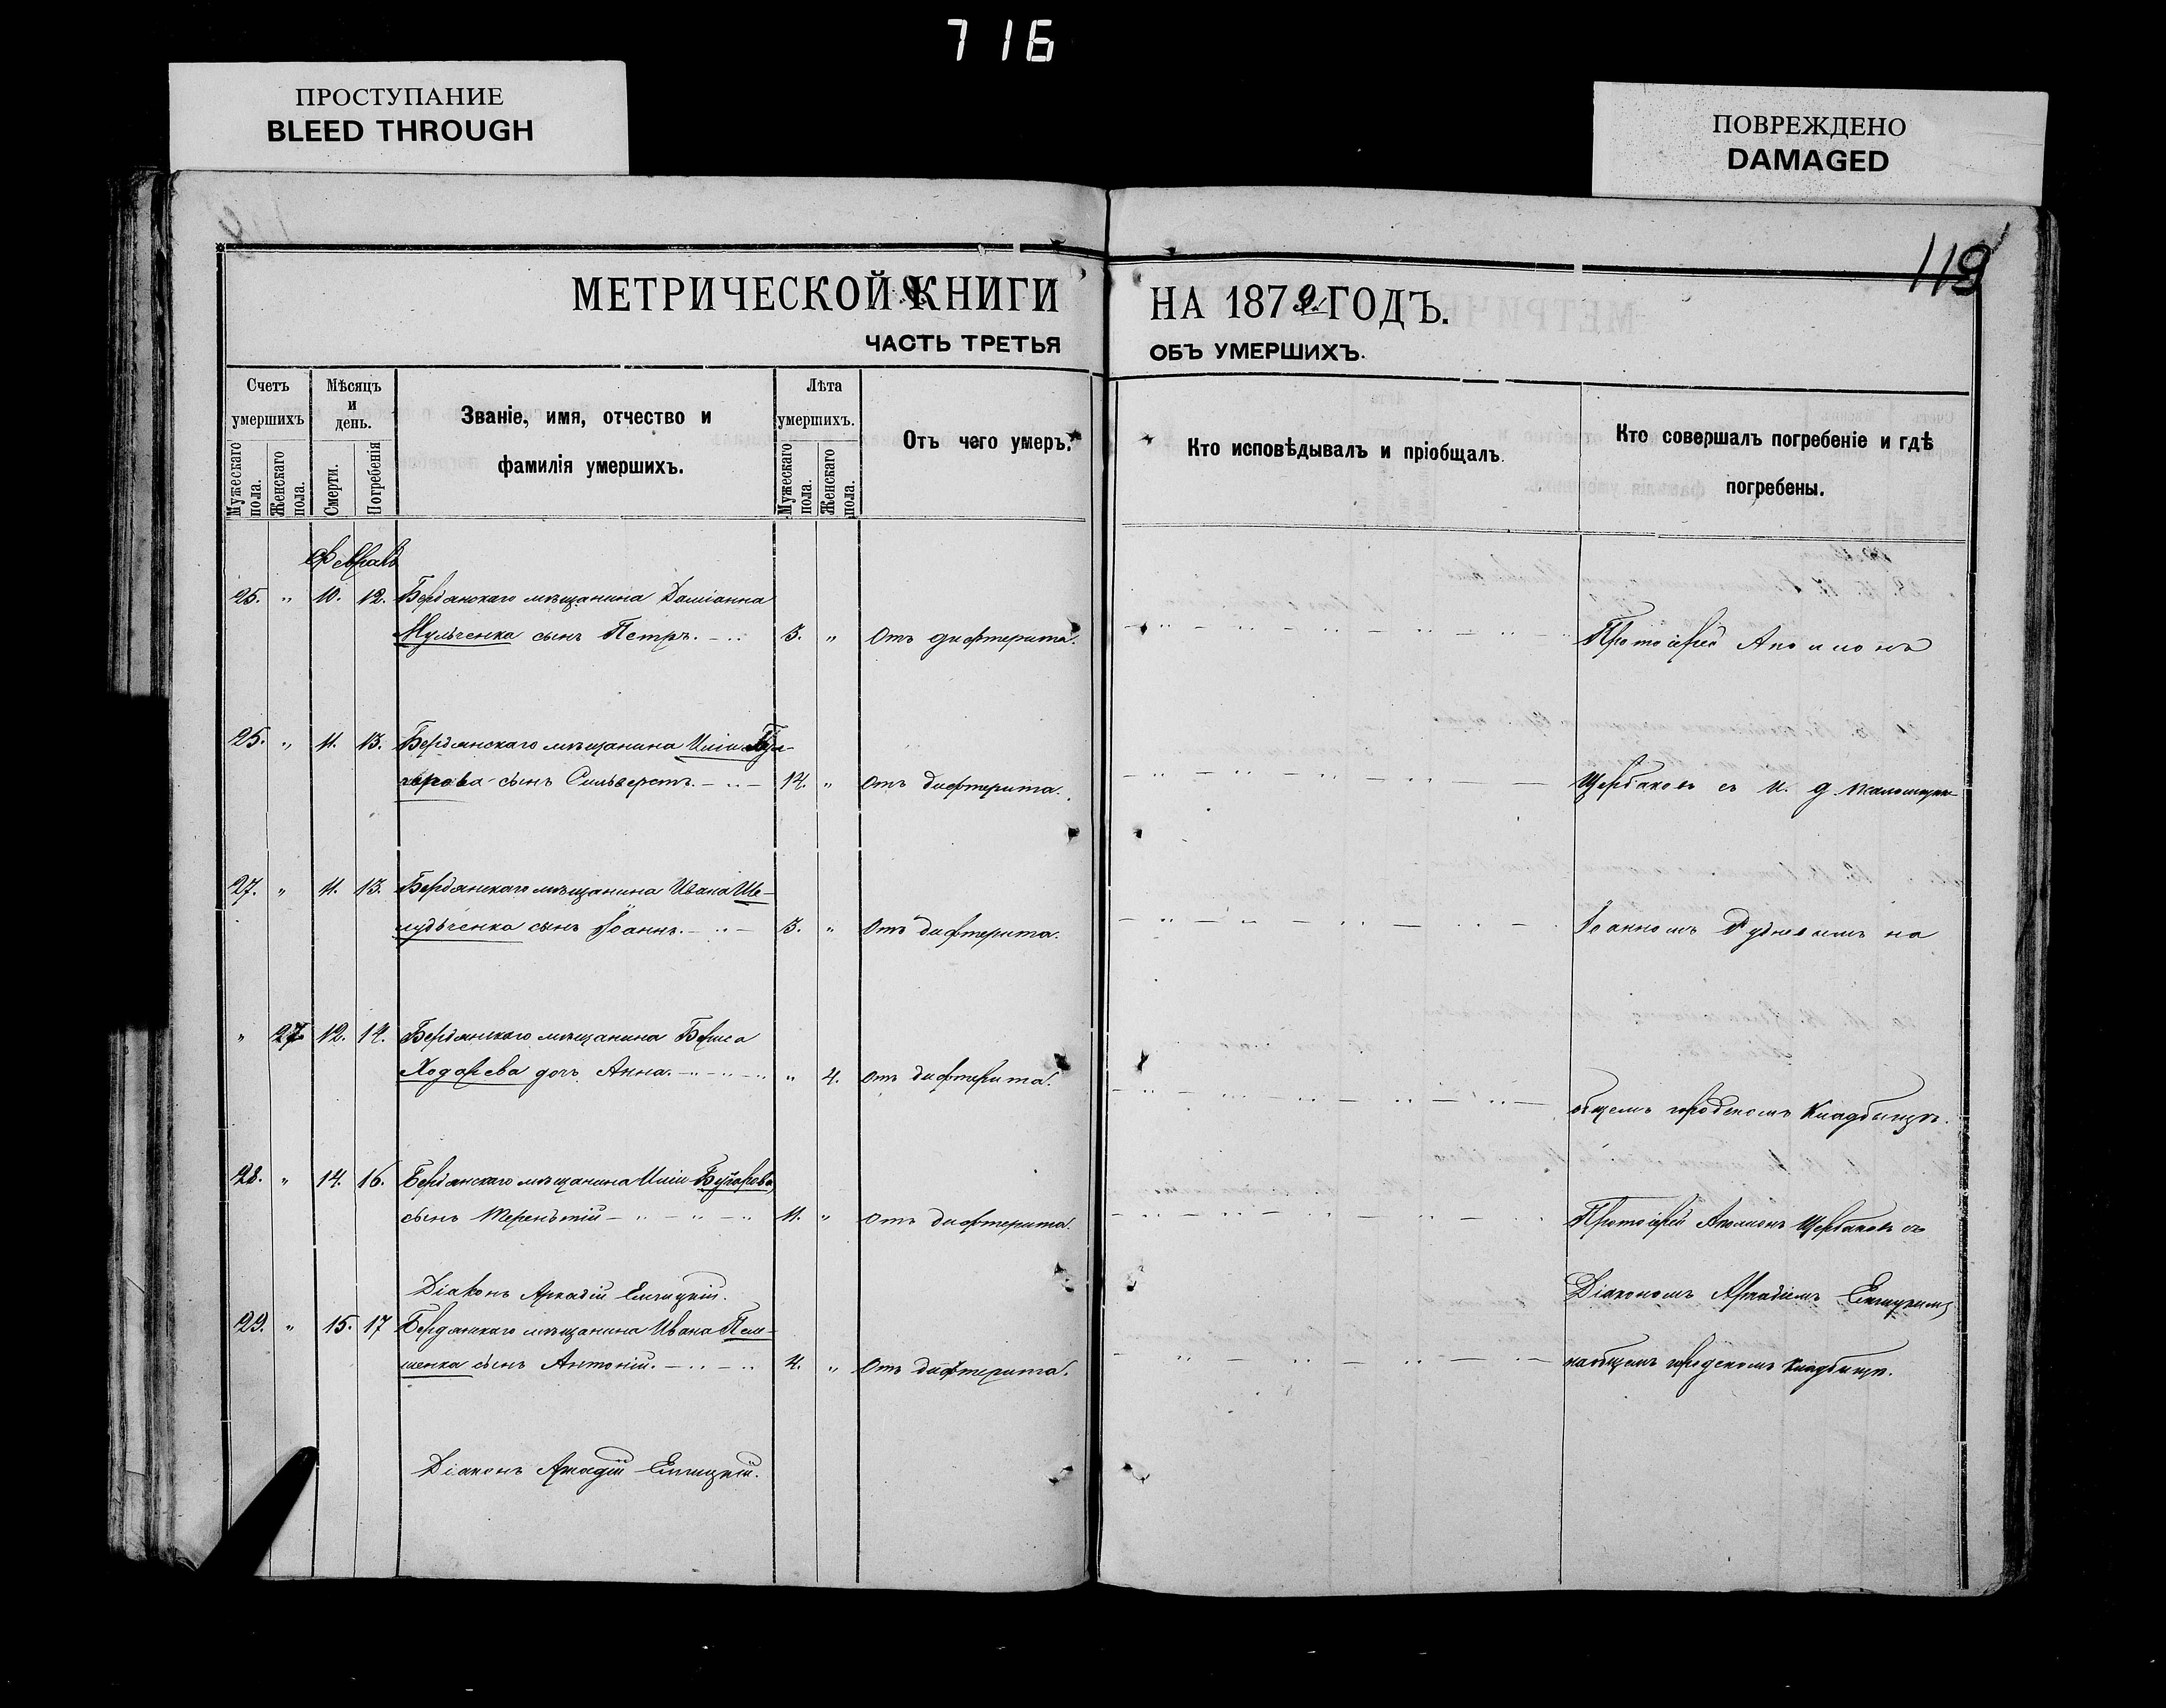 716
ПРОСТУПАНИЕ
BLEED THROUGH
ПОВРЕЖДЕНО
DAMAGED
119
МЕТРИЧЕСКОЙ КНИГИ НА 1879 ГОДЪ.
ЧАСТЬ ТРЕТЬЯ ОБЪ УМЕРШИХЪ.
Счетъ умершихъ
Мужескаго пола.
Женскаго пола.
Мѣсяцъ и день.
Смерти.
Погребенія
Званіе, имя, отчество и
фамилія умершихъ.
Лѣта умершихъ.
Мужескаго пола.
Женскаго пола.
Отъ чего умеръ.
Кто исповѣдывалъ и пріобщалъ.
Кто совершалъ погребеніе и гдѣ
погребены.
Февраль
25. " 10. 12. Бердянскаго мѣщанина Даміанна
Мульченка сынъ Петръ. 3. " Отъ дифтерита. Протоіерей Аполлонъ
25. " 11. 13. Бердянскаго мѣщанина Иліи
сынъ Сильверстъ. 12. " Отъ дифтерита. Щербаковъ съ и. д.
27. " 11. 13. Бердянскаго мѣщанина Ивана Ше-
лудьченка сынъ Іоаннъ. 3. " Отъ дифтерита. Іоанномъ Рудневымъ на
" 27 12. 14. Бердянскаго мѣщанина Бориса
Ходарева дочь Анна. " 4. Отъ дифтерита. общемъ городскомъ кладбищѣ.
28. " 14. 16. Бердянскаго мѣщанина Иліи
сынъ Терентій 11. " Отъ дифтерита. Протоіерей Аполлонъ Щербаковъ съ
Діаконъ Аркадій Діакономъ Аркадіемъ
29. " 15. 17 Бердянскаго мѣщанина Ивана
сынъ Антоній. 4. " Отъ дифтерита. на общемъ городскомъ кладбищѣ.
Діаконъ Аркадій